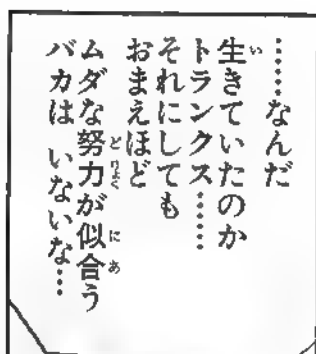 ……なんだ
生きていたのか
トランクス……
それにしても
おまえほど
ムダな努力が似合う
バカは いないな…